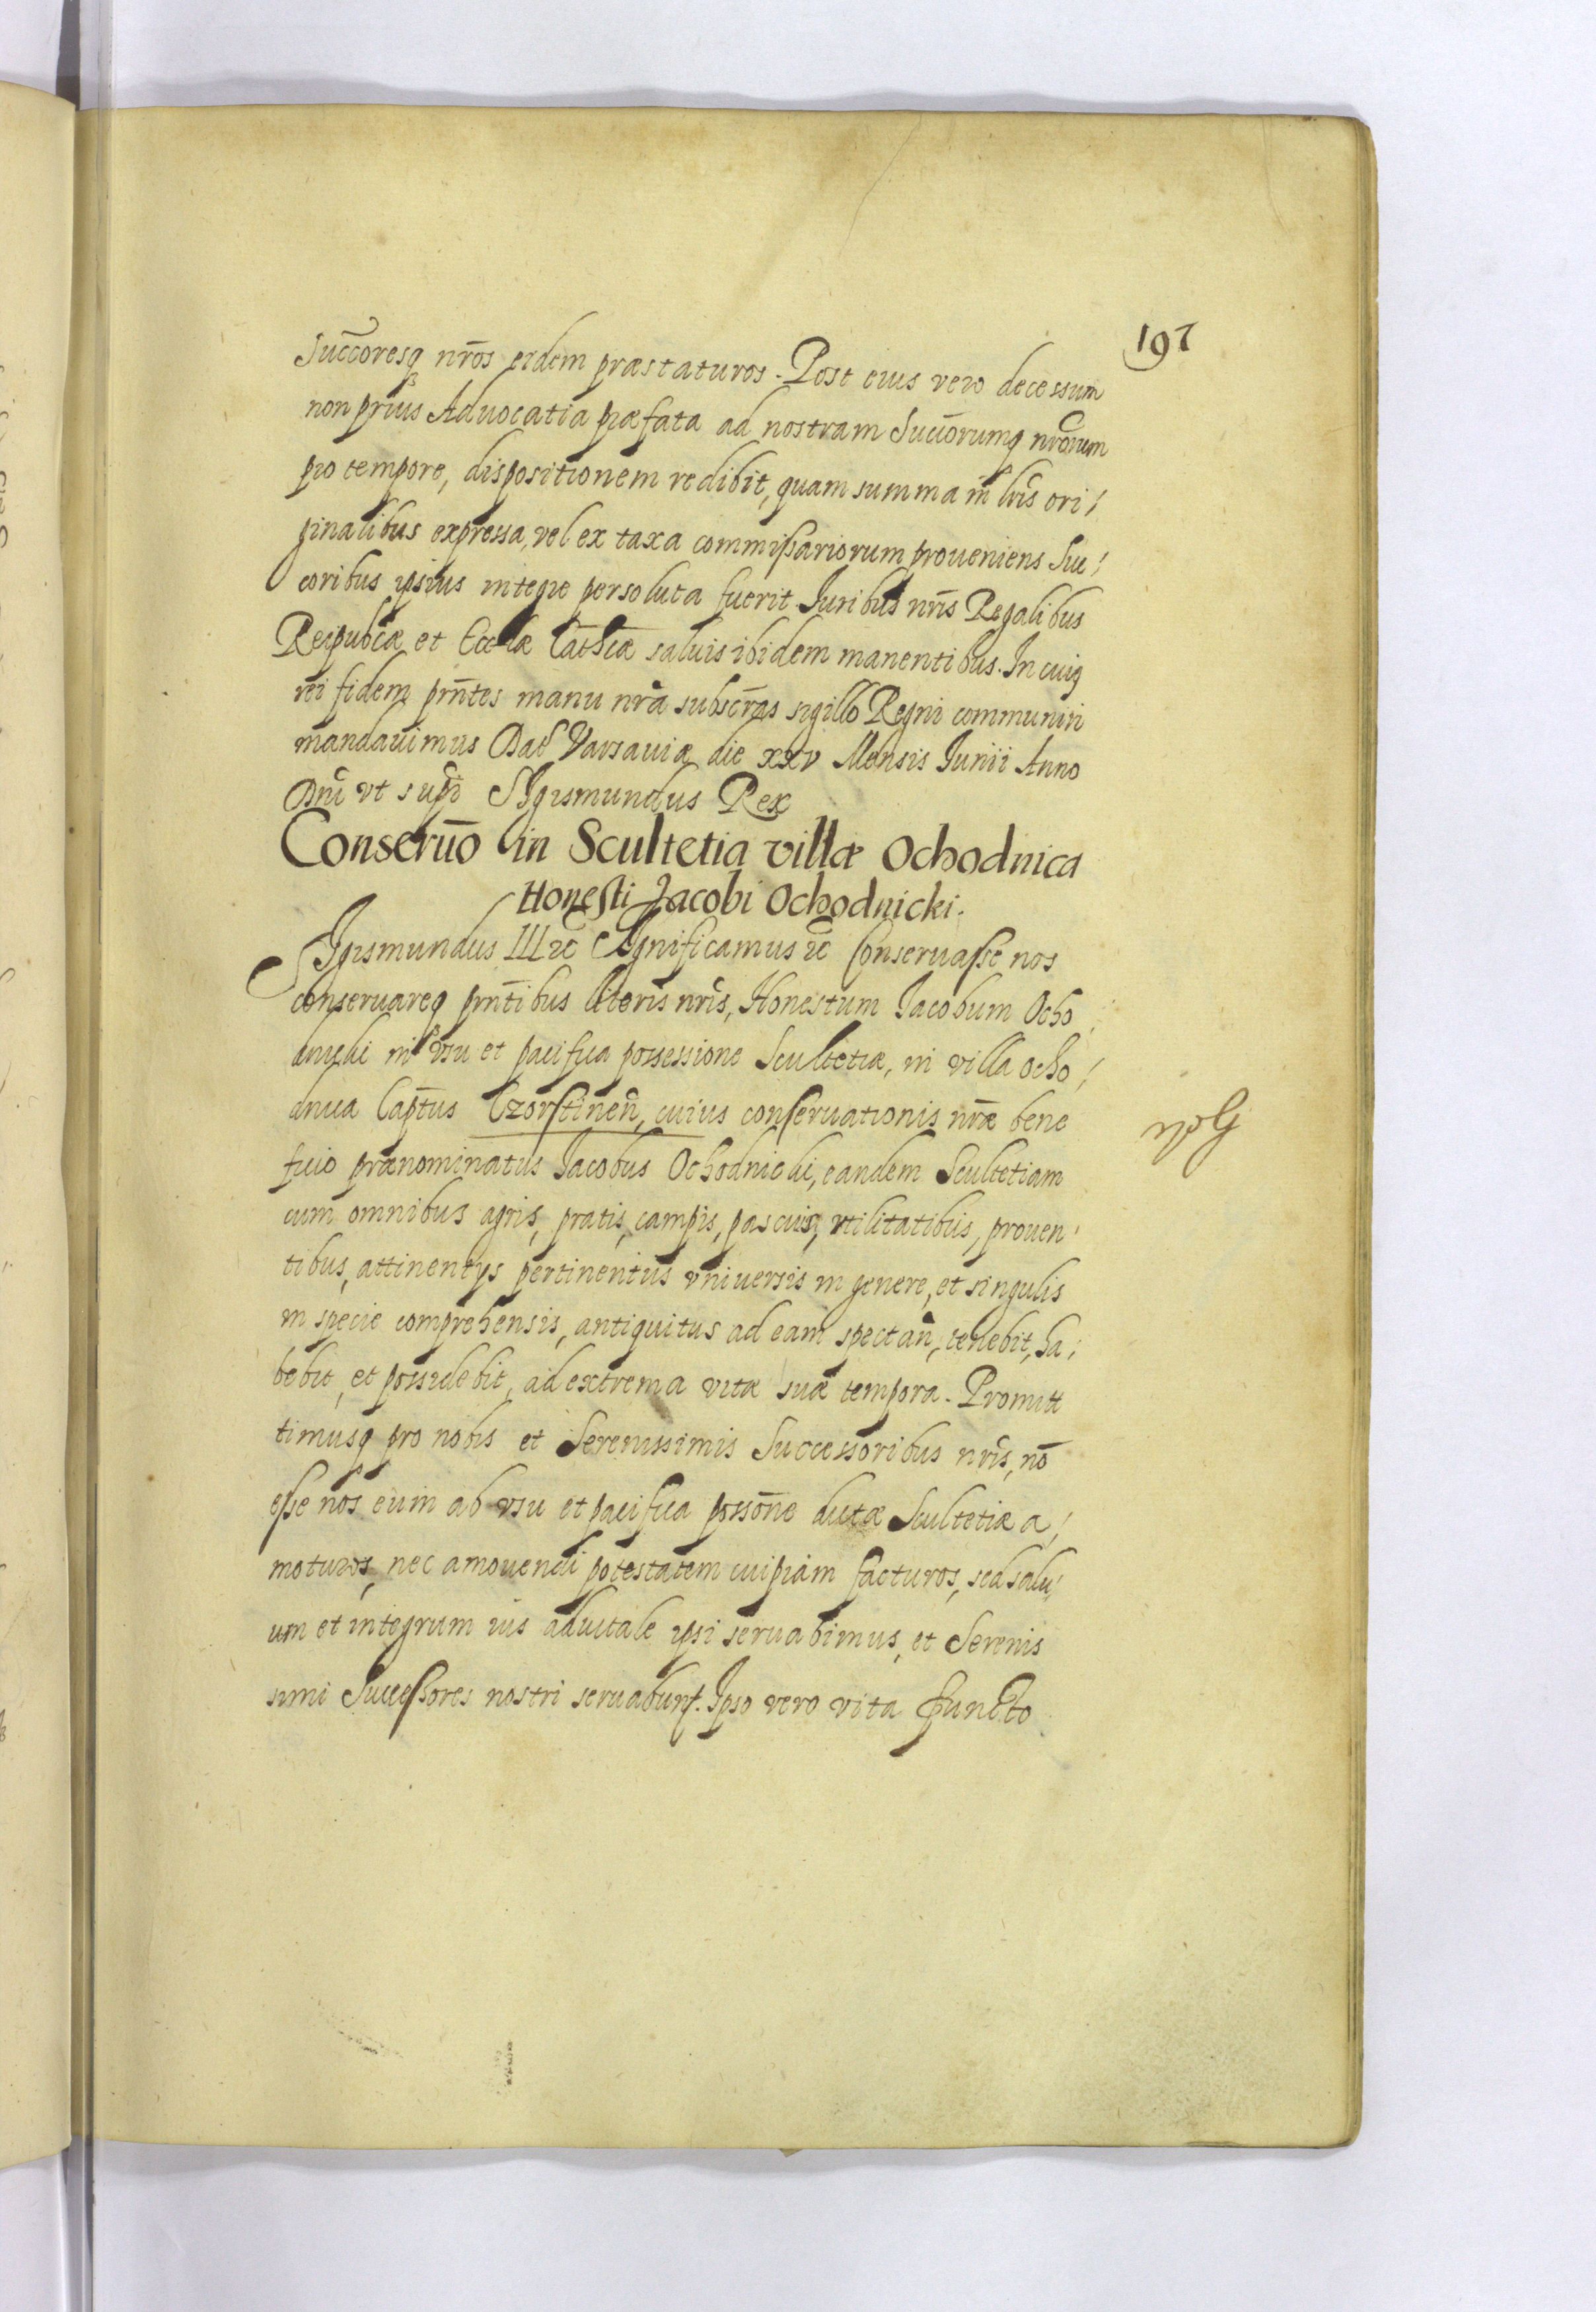 197
Succoresq nros eidem præstaturos. Post eius vero decessum
non prius Advocatia præfata ad nostram Succorumq nrorum
pro tempore, dispositionem redibit, quam summa in lris ori/
ginalibus expressa, vel ex taxa commissariorum proueniens Suc/
coribus ipsius integre persoluta fuerit. Iuribus nris Regalibus
Reipubcæ et Ecclæ Cathcæ saluis ibidem manentibus. In cuiq
rei fidem pntes manu nra subscras sigillo Regni communiri
mandauimus Dat Varsauiæ die xxv Mensis Iunii Anno
Dni vt supr Sigismundus Rex
Conseruo in Scultetia villæ Ochodnica
Honesti Jacobi Ochodnicki.
Sigismundus III etc Significamus etc Conseruasse nos
conseruareq pntibus literis nris, Honestum Iacobum Ocho
dnicki in vsu et pacifica possessione Scultetiæ, in villa Ocho/
dnica Captus Czorstinen, cuius conseruationis nræ bene
ficio prænominatus Iacobus Ochodnicki, eandem Scultetiam
cum omnibus agris, pratis, campis, pascuis, vtilitatibus, prouen
tibus, attinentys pertinentiis vniuersis in genere, et singulis
in specie comprehensis, antiquitus ad eam spectan, tenebit, ha/
bebit, et possidebit, ad extrema vitæ suæ tempora. Promitt
timusq pro nobis et Serenissimis Successoribus nris, no
esse nos eum ab vsu et pacifica possone dictæ Scultetiæ a/
moturos, nec amouendi potestatem cuipiam facturos, sed salu/
um et integrum ius aduitale ipsi seruabimus, et Serenis
simi Successores nostri seruabunt. Ipso vero vita functo